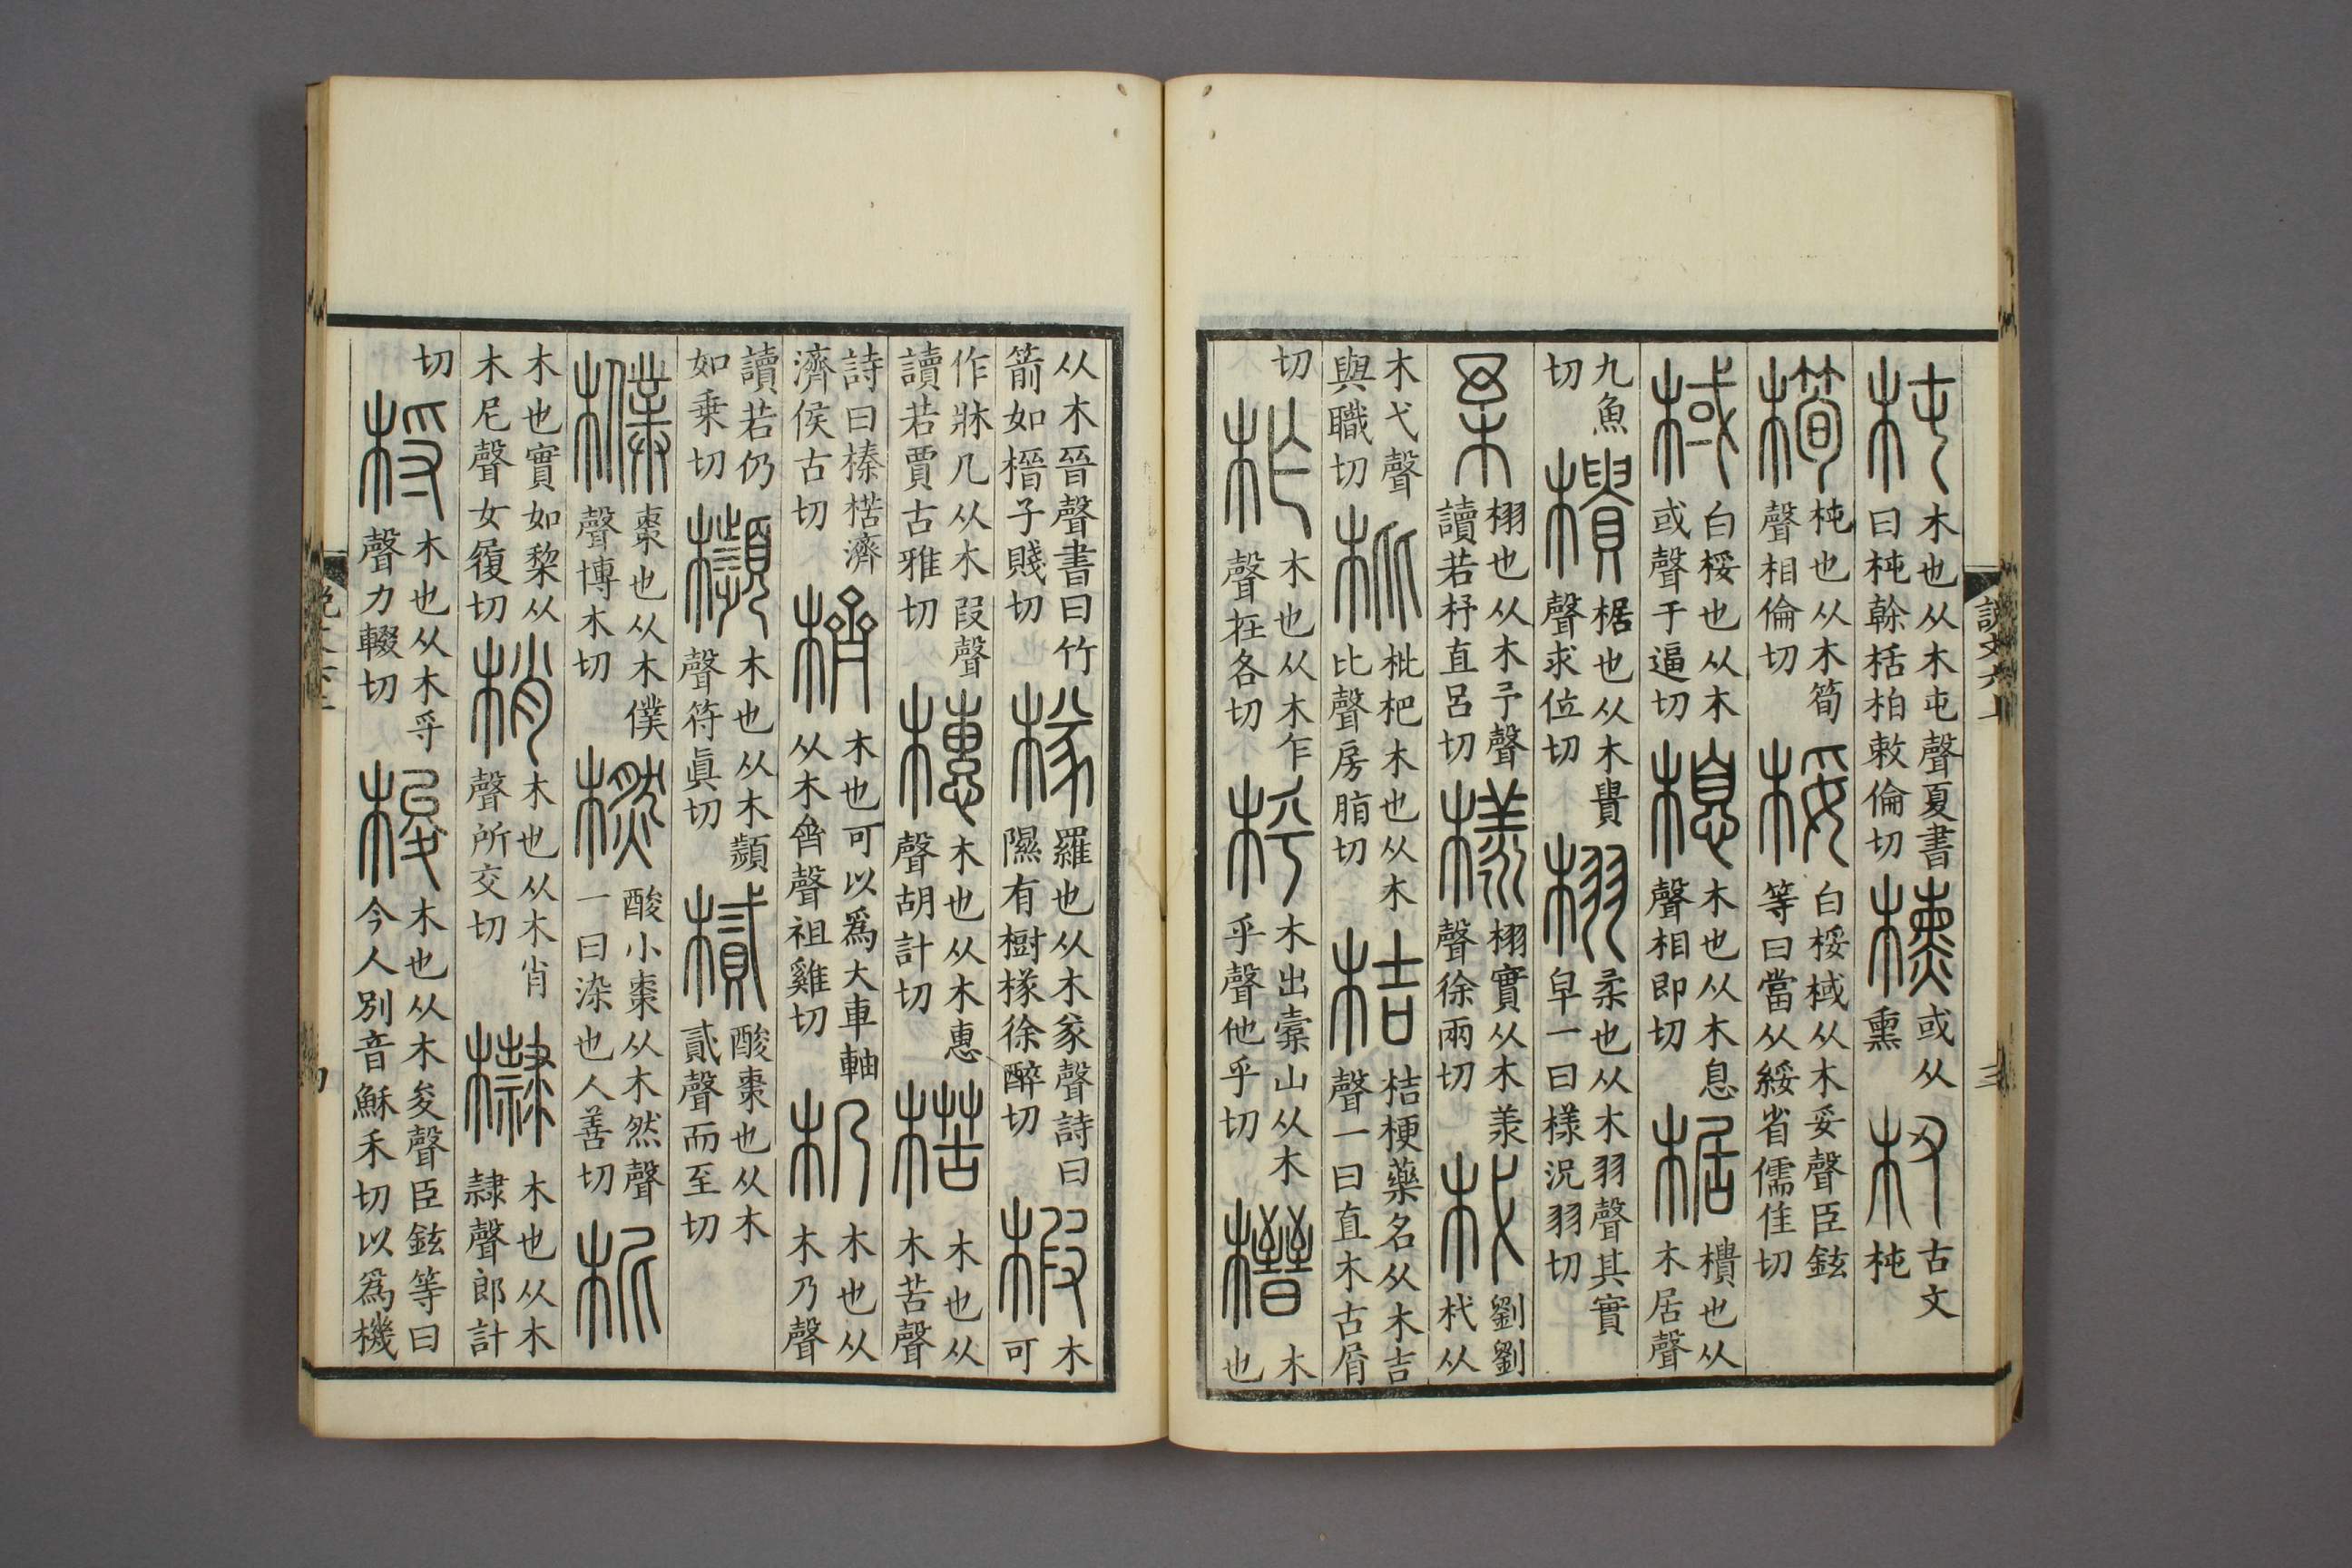 說文六上
三
杶木也从木屯聲夏書曰杶榦栝柏敕倫切櫄或从熏杻古文杶
橁杶也从木筍聲相倫切桵白桵棫从木妥聲臣鉉等曰當从綏省儒隹切
棫白桵也从木或聲于逼切㮩木也从木息聲相即切椐樻也从木居聲
九魚切樻椐也从木貴聲求位切栩柔也从木羽聲其實皁一曰樣況羽切
柔栩也从木予聲讀若杼直呂切樣栩實从木羕聲徐兩切杙劉劉杙从
木弋聲與職切枇枇杷木也从木比聲房脂切桔桔梗藥名从木吉聲一曰直木古屑
切柞木也从木乍聲在各切㭔木出橐山从木乎聲他乎切榗木也
从木晉聲書曰竹箭如榗子賤切㯌羅也从木㒸聲詩曰隰有樹㯌徐醉切椵木可
作牀几从木叚聲讀若賈古雅切橞木也从木惠聲胡計切楛木也从木苦聲
詩曰榛楛濟濟侯古切櫅木也可以爲大車軸从木齊聲祖雞切朷木也从木乃聲
讀若仍如乗切櫇木也从木頻聲符眞切樲酸棗也从木貳聲而至切
樸棗也从木僕聲博木切橪酸小棗从木然聲一曰染也人善切柅
木也實如棃从木尼聲女履切梢木也从木肖聲所交切㯤木也从木隸聲郎計
切埒木也从木寽聲力輟切梭木也从木夋聲臣鉉等曰今人別音穌禾切以爲機